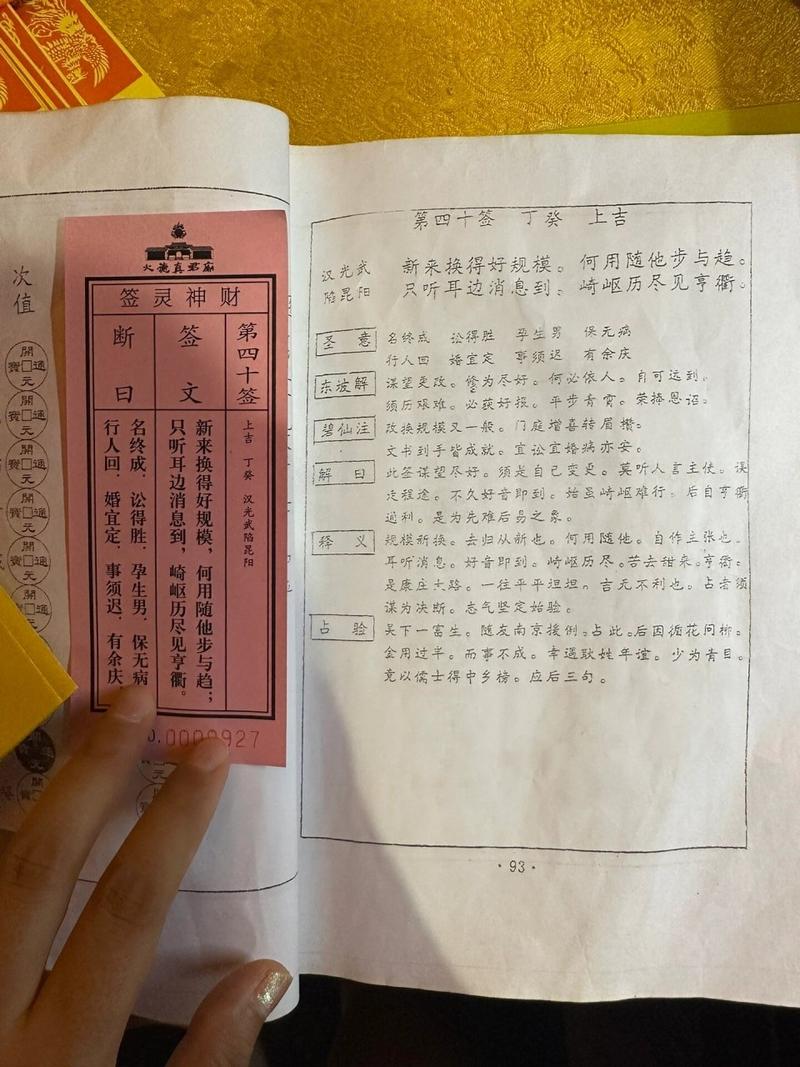 次值
開元通寶
開元通寶
開元通寶
開元通寶
開元通寶
開元通寶
火德真君廟
财神灵签
第四十签
上吉 丁癸 汉光武陷昆阳
签文
新来换得好规模，何用随他步与趋；
只听耳边消息到，崎岖历尽见亨衢。
断曰
名终成．讼得胜．孕生男．保无病
行人回．婚宜定．事须迟．有余庆．
第四十签 丁癸 上吉
汉光武
陷昆阳
新来换得好规模。何用随他步与趋。
只听耳边消息到。崎岖历尽见亨衢。
圣意
名终成 讼得胜 孕生男 保无病
行人回 婚宜定 事须迟 有余庆
东坡解
谋望更改。修为尽好。何必依人。自可远到。
须历艰难。必获好报。平步青霄。荣捧恩诏。
碧仙注
改换规模又一般。门庭增喜转眉攒。
文书到手皆成就。宜讼宜婚病亦安。
解曰
此签谋望尽好。须是自己变更。莫听人言主使。误
泛程途。不久好音即到。始虽崎岖难行。后自亨衢
通利。是为先难后易之象。
释义
规模新换。去归从新也。何用随他。自作主张也。
耳听消息。好音即到。崎岖历尽。苦去甜来。亨衢。
是康庄大路。一往平平坦坦。吉无不利也。占者须
谋为决断。志气坚定始验。
占验
吴下一富生。随友南京援例。占此。后因循花问柳。
金用过半。而事不成。幸遇耿姓年谊。少为青目。
竟以儒士得中乡榜。应后三句。
·93·